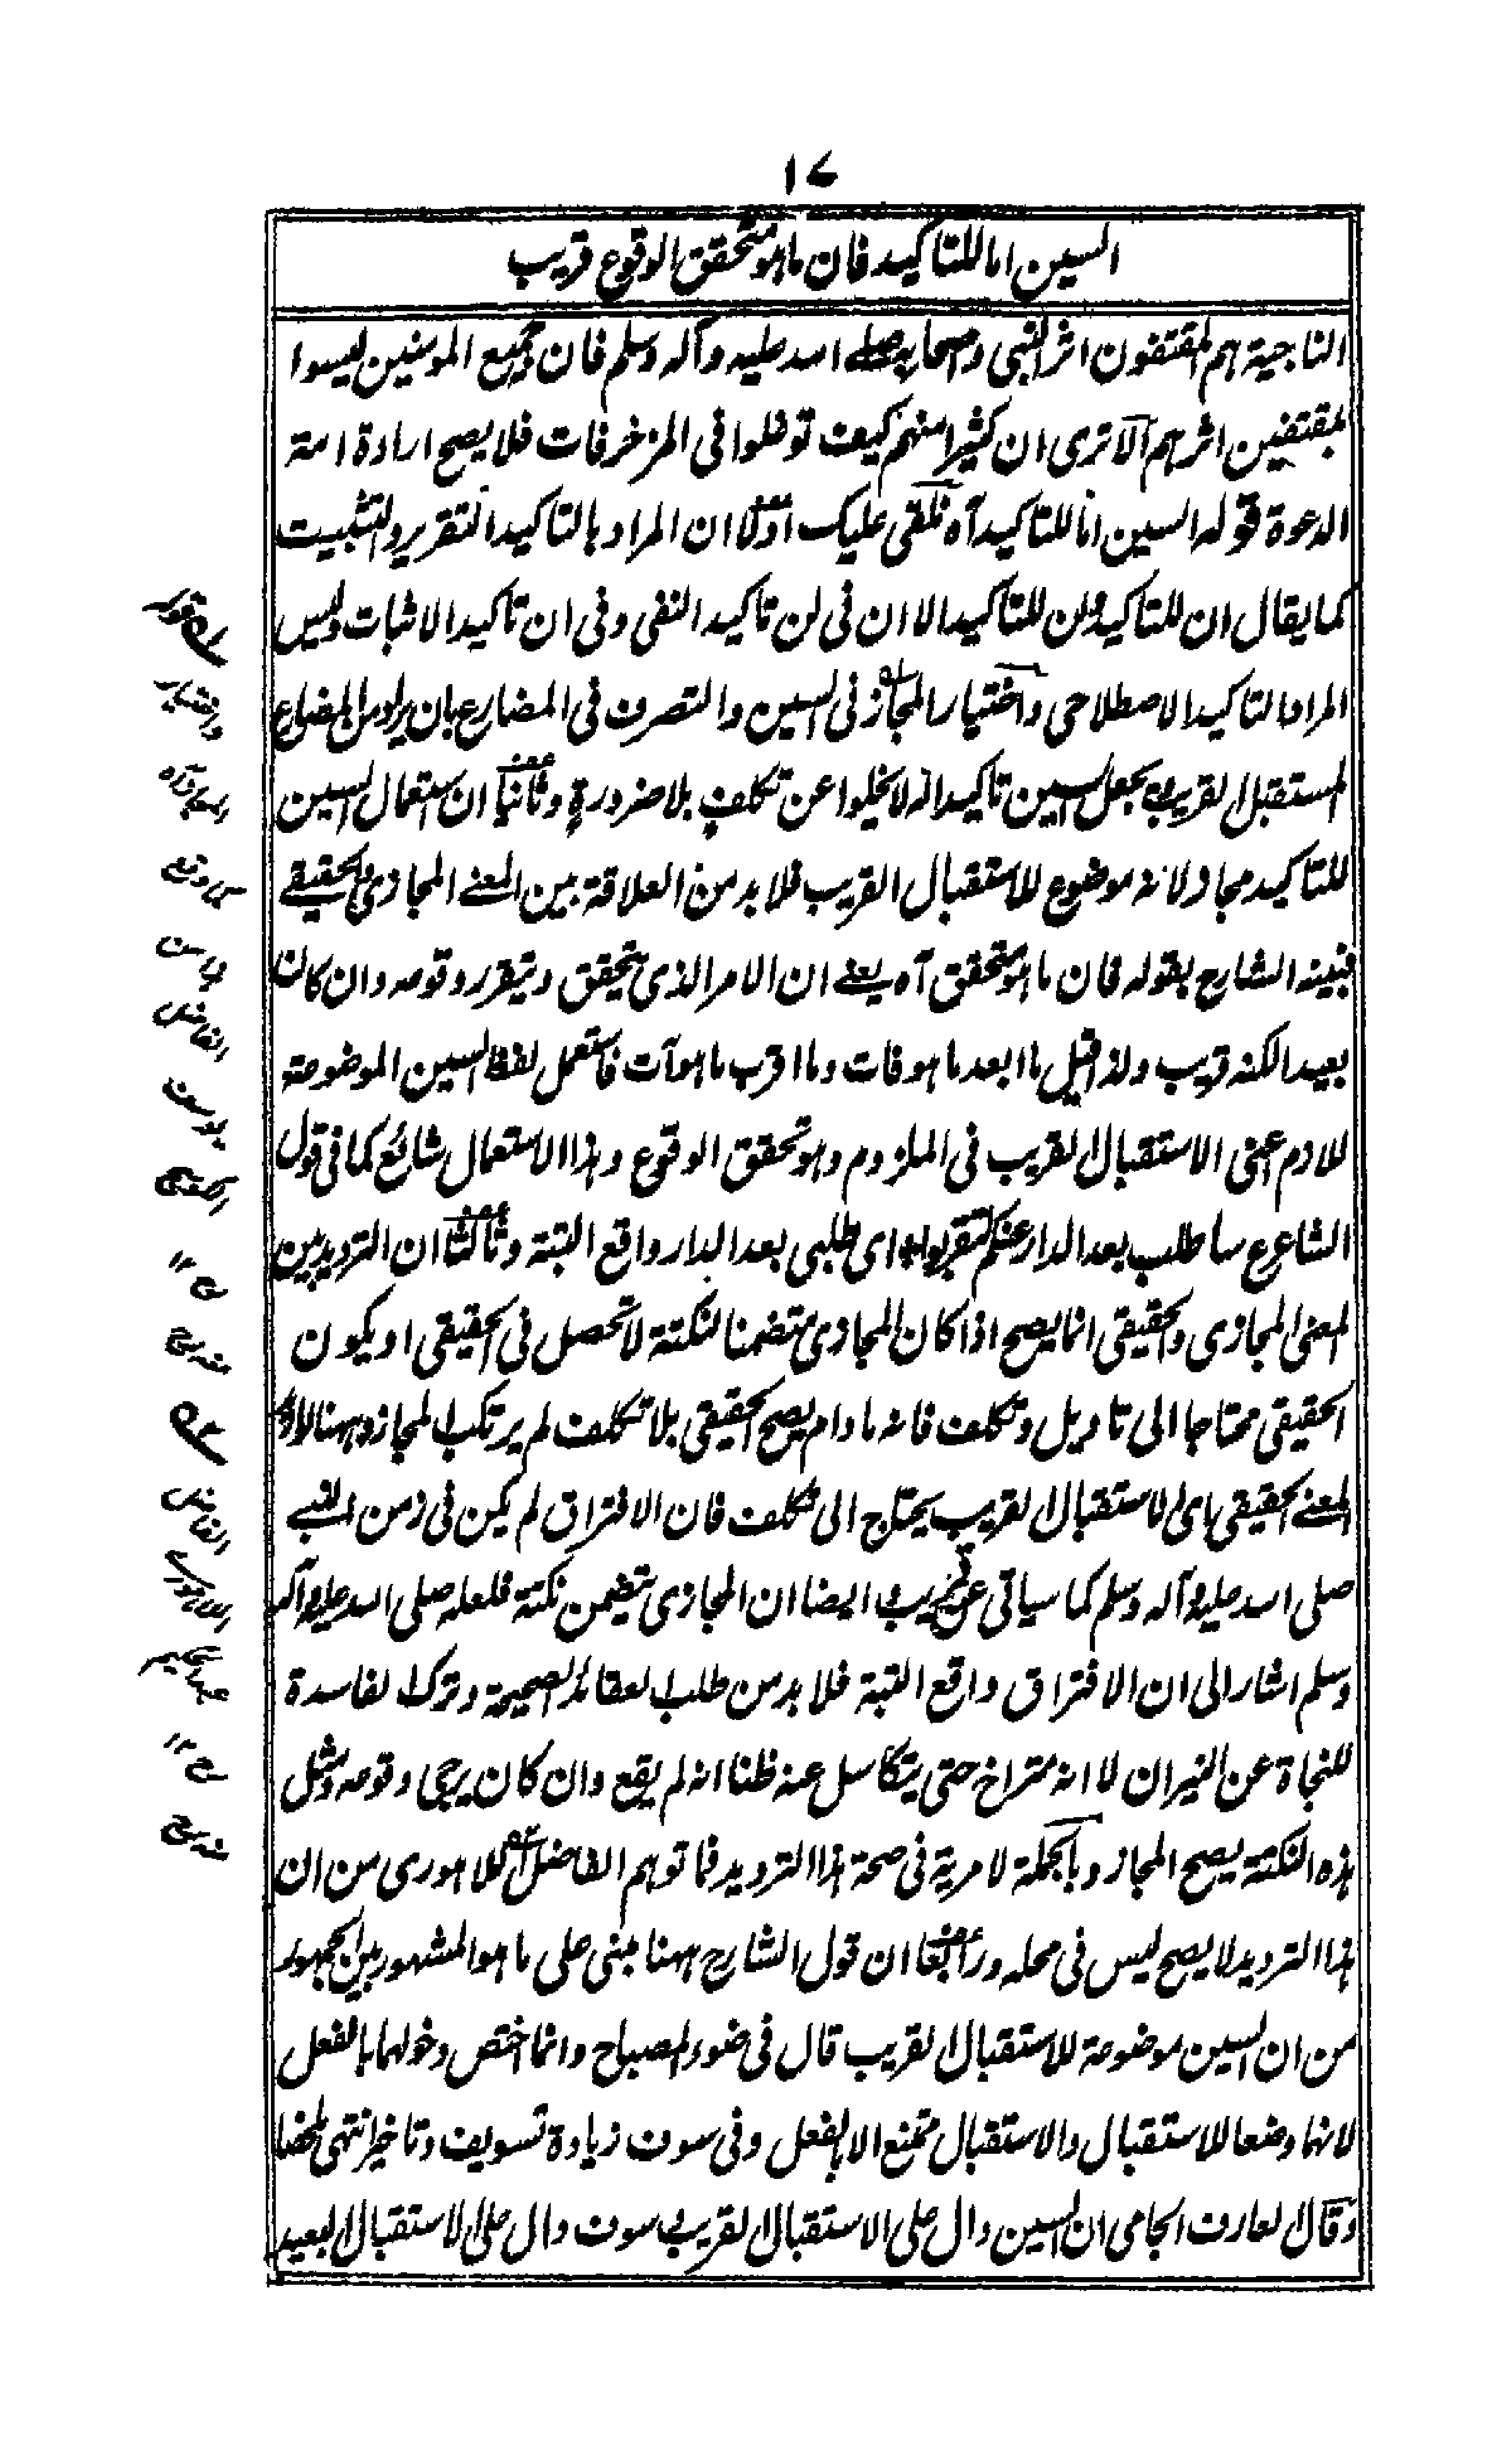 ١٧
السين اما للتاكيد فان ما هو متحقق الوقوع قريب
الناجية هم المقتفون اثر النبى وصحابه صلى الله عليه وآله وسلم فان جميع المومنين ليسوا
المقتفين اثرهم الا ترى ان كثيرا منهم كيف توغلوا فى المزخرفات فلا يصح ارادة امة
الدعوة قوله السين اما للتاكيد آه نلقى عليك اولا ان المراد بالتاكيد التقرير والتثبيت
كما يقال ان للتاكيد ولن للتاكيد الا ان فى لن تاكيد النفى وفى ان تاكيد الاثبات وليس
المراد التاكيد الاصطلاحى واختيار المجاز فى السين والتصرف فى المضارع بان يراد من المضارع
المستقبل القريب بجعل السين تاكيدا له لا يخلوا عن تكلف بلا ضرورة وثانيا ان استعمال السين
للتاكيد مجاز لانه موضوع للاستقبال القريب فلا بد من العلاقة بين المعنے المجازى والحقيقے
فبينه الشارح بقوله فان ما هو متحقق آه يعنے ان الامر الذى يتحقق ويتقرر وقوعه وان كان
بعيدا لكنه قريب ولذا قيل ما ابعد ما هو فات وما اقرب ما هو آت فاستعمل لفظ السين الموضوعة
للازم اعنى الاستقبال القريب فى الملزوم وهو تحقق الوقوع وهذا الاستعمال شائع كما فى قول
الشاعر ع ساطلب بعد الدار عنكم لتقربوا اى طلبى بعد الدار واقع البتة وثالثا ان الترديد بين
المعنى المجازى والحقيقى انما يصح اذا كان المجازى متضمنا لنكتة لا تحصل فى الحقيقى او يكون
الحقيقى محتاجا الى تاويل وتكلف فانه ما دام يصح الحقيقى بلا تكلف لم يرتكب المجاز وههنا لارادة
المعنے الحقيقى اى الاستقبال القريب يحتاج الى تكلف فان الافتراق لم يكن فى زمن النبے
صلى الله عليه وآله وسلم كما سياتى عن قريب وايضا ان المجازى يتضمن نكتة فلعله صلى الله عليه وآله
وسلم اشار الى ان الافتراق واقع البتة فلا بد من طلب العقائد الصحيحة وترك الفاسدة
للنجاة عن النيران لا انه متراخ حتى يتكاسل عنه ظنا انه لم يقع وان كان يرجى وقوعه ومثل
هذه النكتة يصح المجاز وبالجملة لا مرية فى صحة هذا الترديد فما توهم الفاضل اللاهورى من ان
هذا الترديد لا يصح ليس فى محله ورابعا ان قول الشارح ههنا مبنى على ما هو المشهور بين الجمهور
من ان السين موضوعة للاستقبال القريب قال فى ضوء المصباح وانما اختص دخولهما بالفعل
لانهما وضعا للاستقبال والاستقبال ممتنع الا بالفعل وفى سوف زيادة تسويف وتاخير انتهى ملخصا
وقال العارف الجامى ان السين دال على الاستقبال القريب وسوف دال على الاستقبال البعيد
الفاضل
يوسف
منه رح
الفاضل
اللاهورى
عبد الحكيم
منه رح